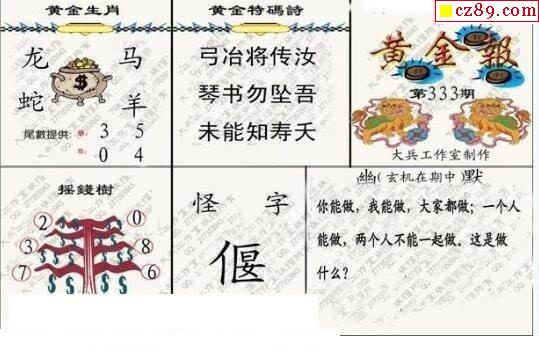 cz89.com
黄金生肖
龙 马
蛇 羊
尾數提供: 3 5
0 4
黄金特碼詩
弓冶将传汝
琴书勿坠吾
未能知寿夭
黄金報
第333期
大兵工作室制作
摇錢樹
2 0
3 8
7 6
怪 字
偃
幽(玄机在期中)默
你能做，我能做，大家都做；一个人
能做，两个人不能一起做。这是做
什么？